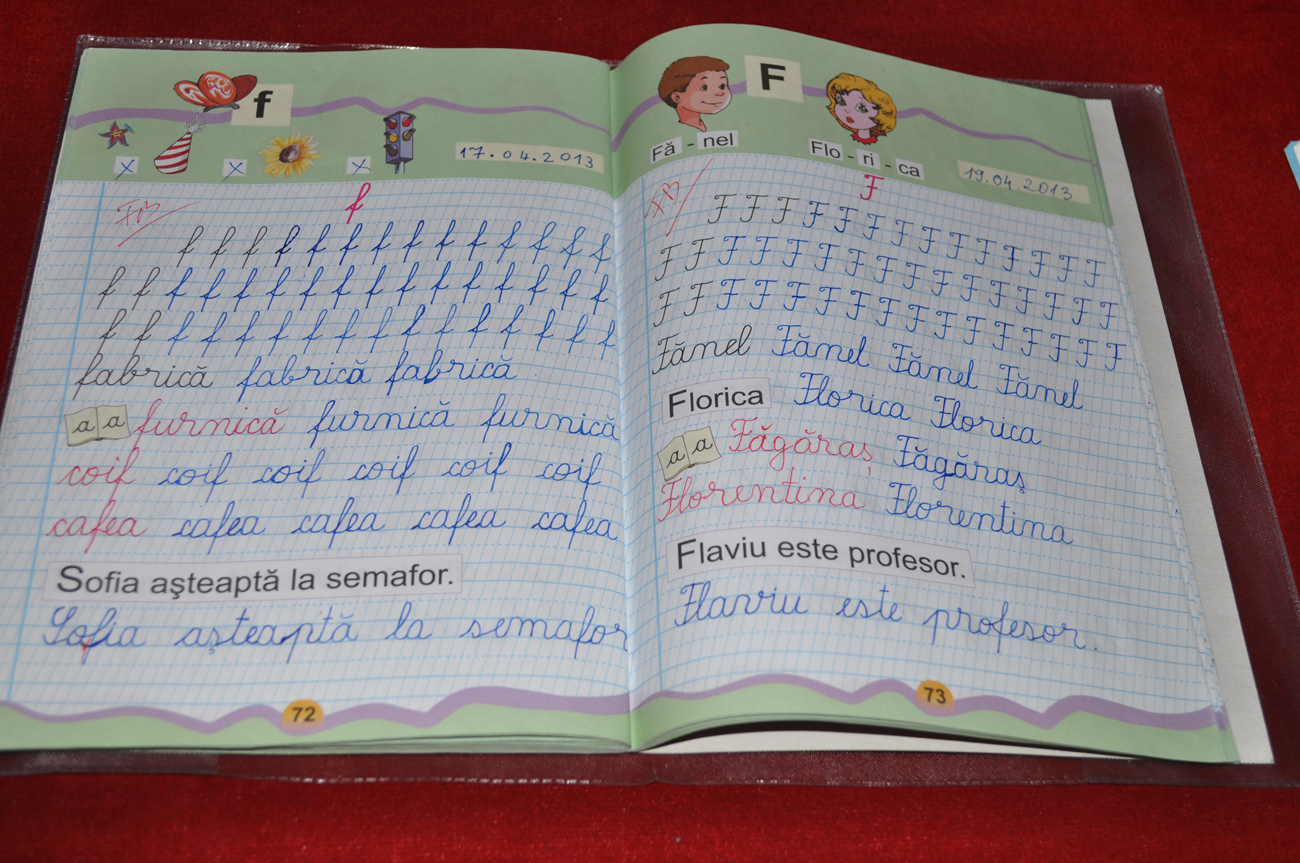 f
x x x
17.04.2013
FB
f
f f f f f f f f f f f f f f
f f f f f f f f f f f f f f f f
f f f f f f f f f f f f f f f f
fabrică fabrică fabrică
a a furnică furnică furnică
coif coif coif coif coif coif
cafea cafea cafea cafea cafea
Sofia aşteaptă la semafor.
Sofia așteaptă la semafor
72
F
Fă - nel Flo - ri - ca
19.04 2013
FB
F
F F F F F F F F F F F F F F
F F F F F F F F F F F F F F F F
F F F F F F F F F F F F F F F F
Fănel Fănel Fănel Fănel
Florica Florica Florica
a a Făgăraș Făgăraș
Florentina Florentina
Flaviu este profesor.
Flaviu este profesor.
73